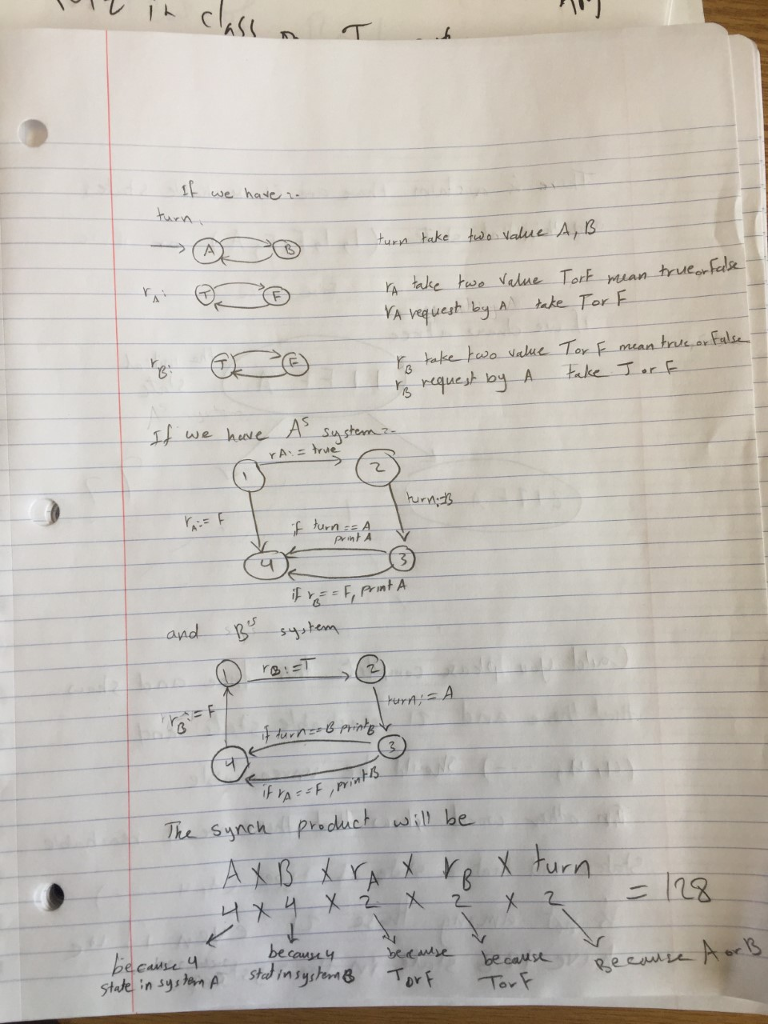 in class
If we have:-
turn.
A B
turn take two value A, B
rA: T F
rA take two value TorF mean true or False
rA request by A take Tor F
rB: T F
rB take two value Tor F mean true or False
rB request by A take T or F
If we have A's system:-
1 rA:= true 2
rA:= F
turn:=B
if turn == A
print A
4 3
if rB == F, print A
and B's system
1 rB:=T 2
rB:=F
turn:= A
if turn==B print B
4 3
if rA == F, print B
The synch product will be
A X B X rA X rB X turn
4 X 4 X 2 X 2 X 2 = 128
because 4
state in system A
because 4
stat in system B
because
TorF
because
TorF
Because A or B